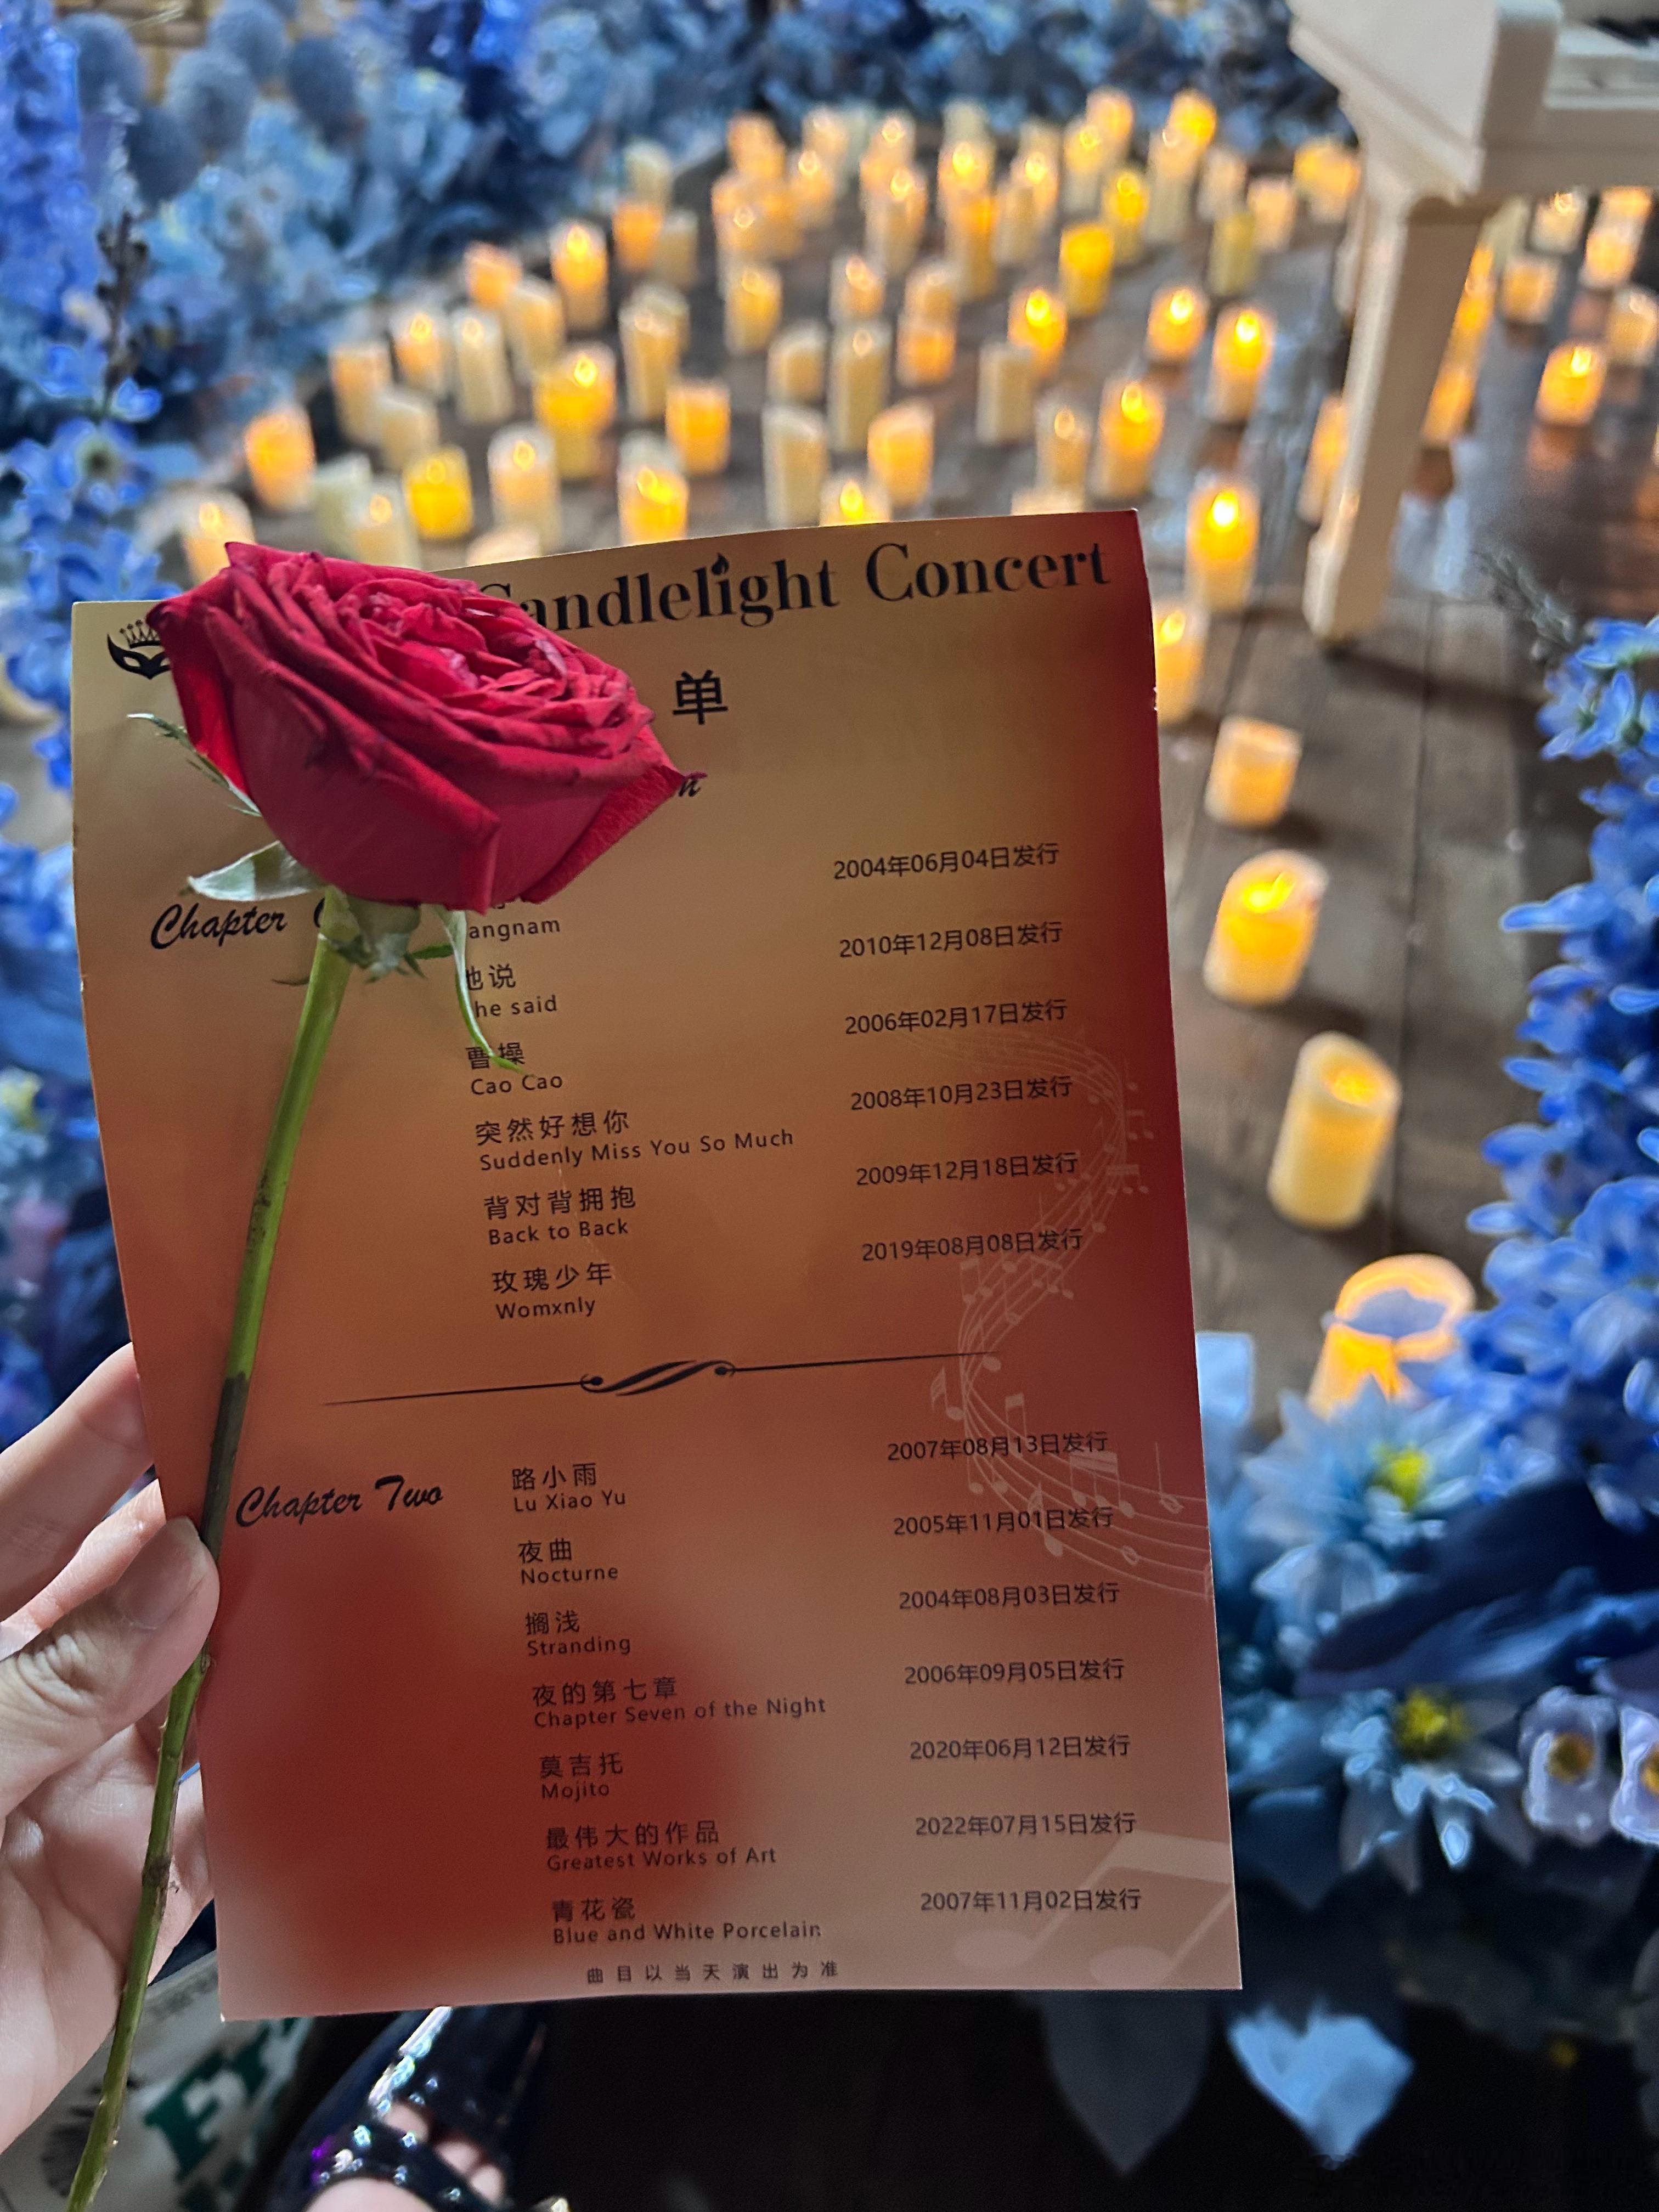 Candlelight Concert
单
2004年06月04日发行
Chapter
angnam
2010年12月08日发行
他说
he said
2006年02月17日发行
曹操
Cao Cao
2008年10月23日发行
突然好想你
Suddenly Miss You So Much
2009年12月18日发行
背对背拥抱
Back to Back
2019年08月08日发行
玫瑰少年
Womxnly
Chapter Two
2007年08月13日发行
路小雨
Lu Xiao Yu
2005年11月01日发行
夜曲
Nocturne
2004年08月03日发行
搁浅
Stranding
2006年09月05日发行
夜的第七章
Chapter Seven of the Night
2020年06月12日发行
莫吉托
Mojito
2022年07月15日发行
最伟大的作品
Greatest Works of Art
2007年11月02日发行
青花瓷
Blue and White Porcelain
曲目以当天演出为准